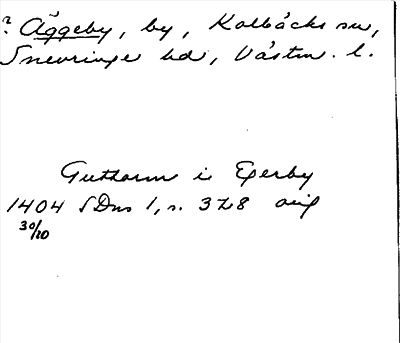 ? Äggeby, by, Kolbäcks sn,
Snevringe hd, Västm. l.
Guthorm i Egerby
1404 SDns 1, s. 328 orig
30/10